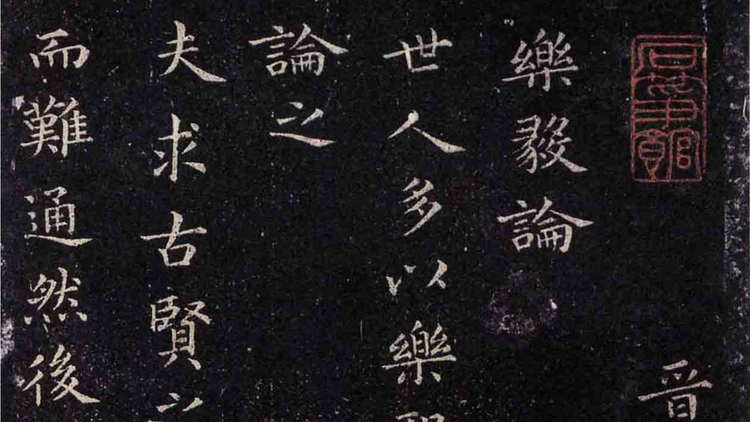 晋
樂毅論
世人多以樂
論之
夫求古賢之
而難通然後